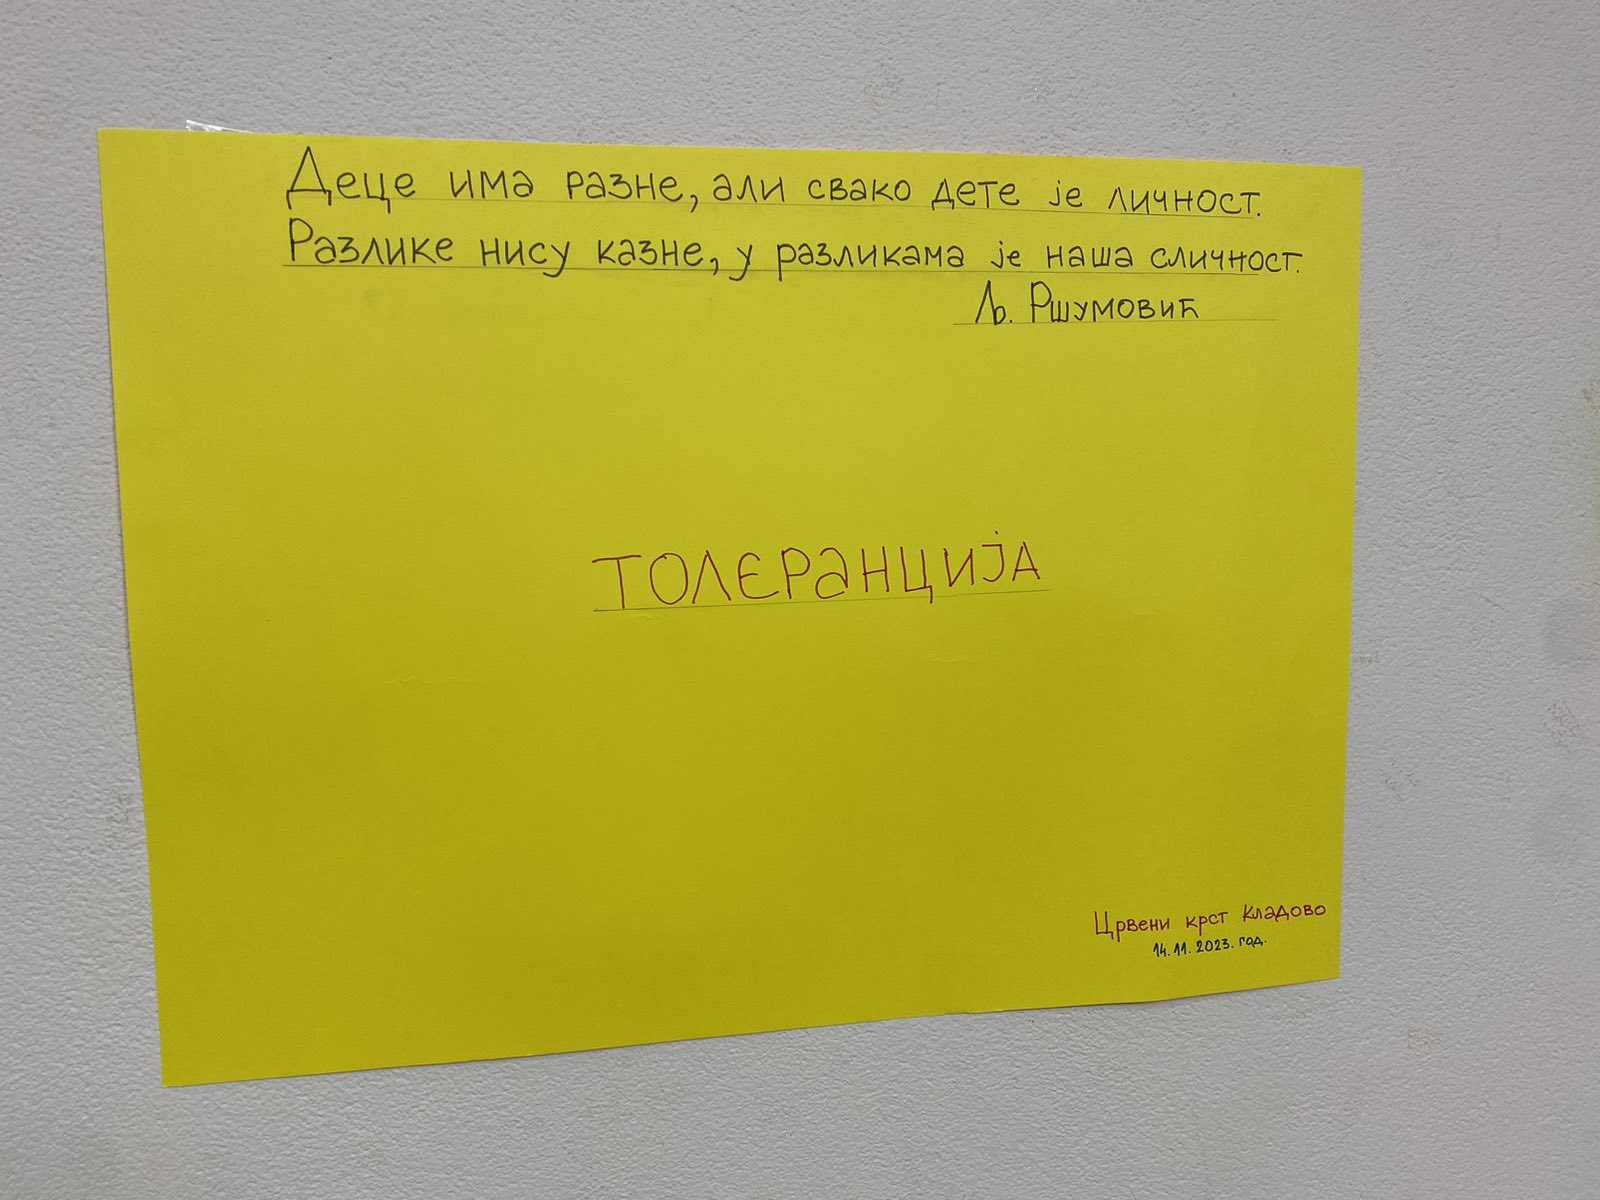 Деце има разне, али свако дете је личност.
Разлике нису казне, у разликама је наша сличност.
Љ. Ршумовић
ТОЛЕРАНЦИЈА
Црвени крст Кладово
14.11.2023. год.